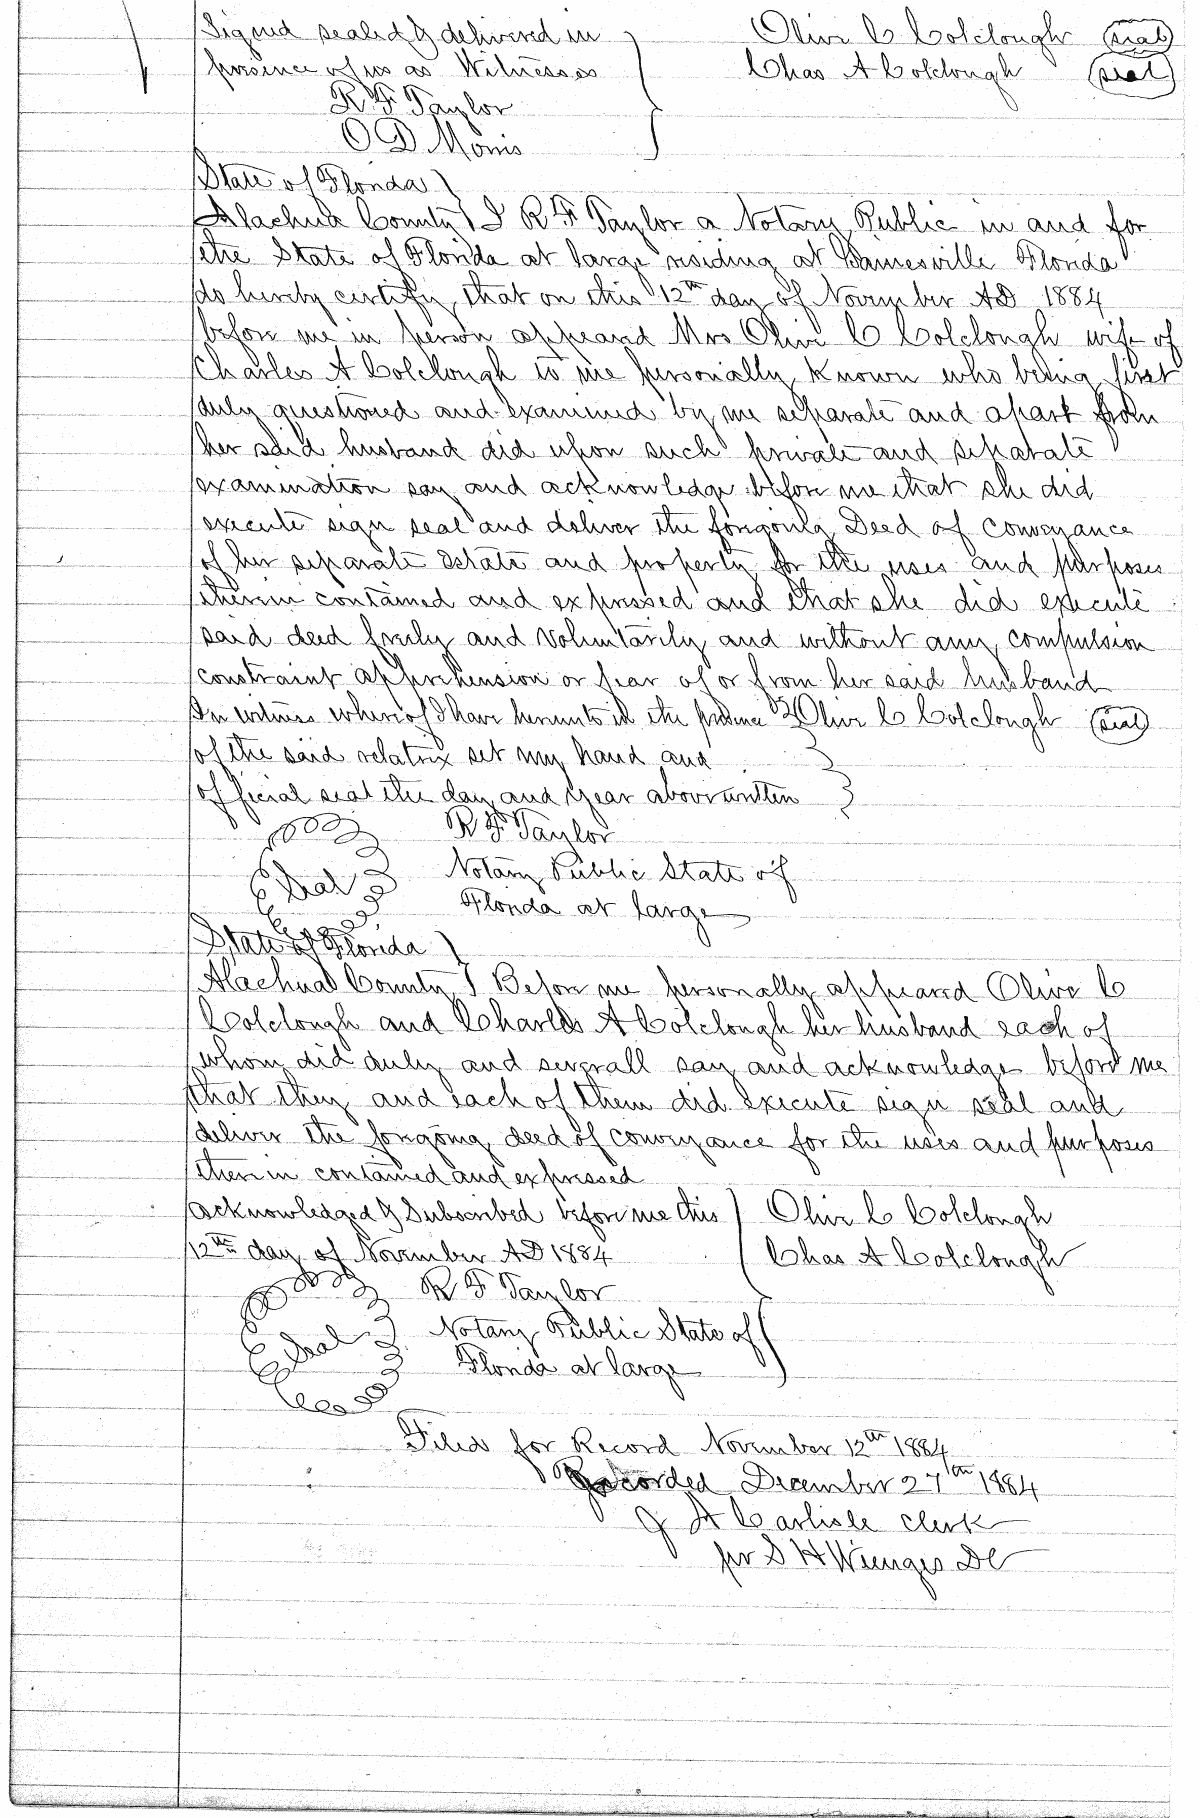 Signed sealed & delivered in Olive C Colclough (seal)
presence of us as Witnesses Chas A Colclough (seal)
R F Taylor
O D Morris
State of Florida
Alachua County I R F Taylor a Notary Public in and for
the State of Florida at large residing at Gainesville Florida
do hereby certify that on this 12th day of November AD 1884
before me in person appeared Mrs Olive C Colclough wife of
Charles A Colclough to me personally known who being first
duly questioned and examined by me separate and apart from
her said husband did upon such private and separate
examination say and acknowledge before me that she did
execute sign seal and deliver the foregoing Deed of Conveyance
of her separate Estate and property for the uses and purposes
therein contained and expressed and that she did execute
said deed freely and voluntarily and without any compulsion
constraint apprehension or fear of or from her said husband
In witness whereof I have hereunto in the presence Olive C Colclough (seal)
of the said relatrix set my hand and
official seal the day and year above written
R F Taylor
Seal Notary Public State of
Florida at large
State of Florida
Alachua County Before me personally appeared Olive C
Colclough and Charles A Colclough her husband each of
whom did duly and severall say and acknowledge before me
that they and each of them did execute sign seal and
deliver the foregoing deed of conveyance for the uses and purposes
therein contained and expressed
Acknowledged & Subscribed before me this Olive C Colclough
12th day of November AD 1884 Chas A Colclough
R F Taylor
Seal Notary Public State of
Florida at large
Filed for Record November 12th 1884
Recorded December 27th 1884
J A Carlisle Clerk
per S H Wienges DC